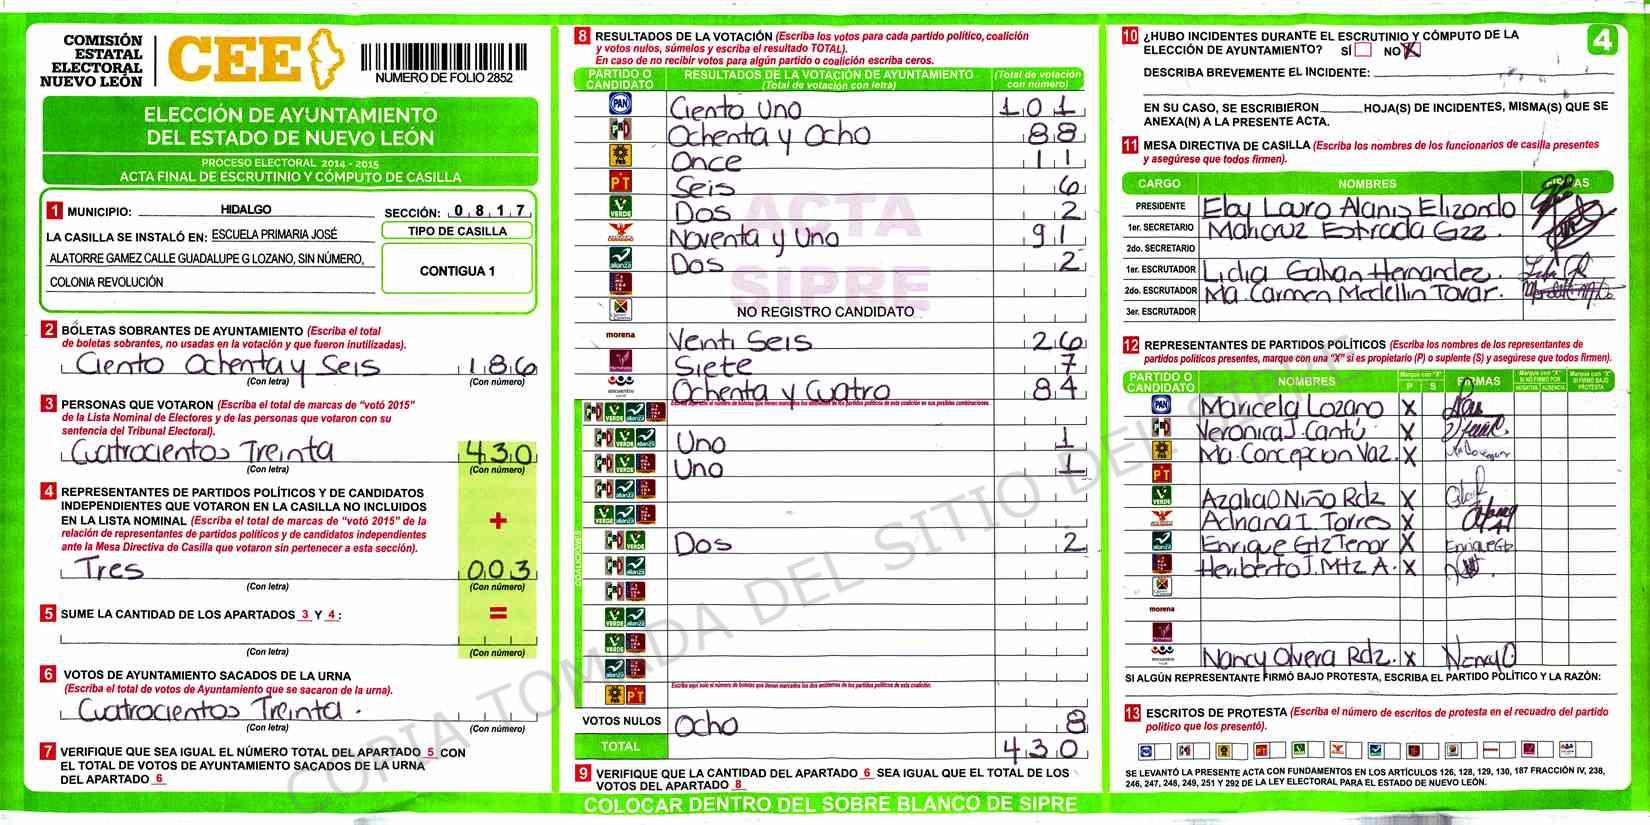 COMISIÓN
ESTATAL
ELECTORAL
NUEVO LEÓN
CEE
NUMERO DE FOLIO 2852
ELECCIÓN DE AYUNTAMIENTO
DEL ESTADO DE NUEVO LEÓN
PROCESO ELECTORAL 2014 - 2015
ACTA FINAL DE ESCRUTINIO Y CÓMPUTO DE CASILLA
1 MUNICIPIO: HIDALGO SECCIÓN: 0 8 1 7
LA CASILLA SE INSTALÓ EN: ESCUELA PRIMARIA JOSÉ
ALATORRE GAMEZ CALLE GUADALUPE G LOZANO, SIN NÚMERO,
COLONIA REVOLUCIÓN
TIPO DE CASILLA
CONTIGUA 1
2 BOLETAS SOBRANTES DE AYUNTAMIENTO (Escriba el total
de boletas sobrantes, no usadas en la votación y que fueron inutilizadas).
Ciento Ochenta y Seis 186
(Con letra) (Con número)
3 PERSONAS QUE VOTARON (Escriba el total de marcas de "votó 2015"
de la Lista Nominal de Electores y de las personas que votaron con su
sentencia del Tribunal Electoral).
Cuatrocientos Treinta 430
(Con letra) (Con número)
4 REPRESENTANTES DE PARTIDOS POLÍTICOS Y DE CANDIDATOS
INDEPENDIENTES QUE VOTARON EN LA CASILLA NO INCLUIDOS
EN LA LISTA NOMINAL (Escriba el total de marcas de "votó 2015" de la
relación de representantes de partidos políticos y de candidatos independientes
ante la Mesa Directiva de Casilla que votaron sin pertenecer a esta sección).
+
Tres 003
(Con letra) (Con número)
5 SUME LA CANTIDAD DE LOS APARTADOS 3 Y 4:
=
(Con letra) (Con número)
6 VOTOS DE AYUNTAMIENTO SACADOS DE LA URNA
(Escriba el total de votos de Ayuntamiento que se sacaron de la urna).
Cuatrocientos Treinta.
(Con letra) (Con número)
7 VERIFIQUE QUE SEA IGUAL EL NÚMERO TOTAL DEL APARTADO 5 CON
EL TOTAL DE VOTOS DE AYUNTAMIENTO SACADOS DE LA URNA
DEL APARTADO 6
8 RESULTADOS DE LA VOTACIÓN (Escriba los votos para cada partido político, coalición
y votos nulos, súmelos y escriba el resultado TOTAL).
En caso de no recibir votos para algún partido o coalición escriba ceros.
PARTIDO O CANDIDATO
RESULTADOS DE LA VOTACIÓN DE AYUNTAMIENTO
(Total de votación con letra)
(Total de votación con número)
PAN Ciento Uno 101
PRI Ochenta y Ocho 88
PRD Once 11
PT Seis 6
VERDE Dos 2
Noventa y Uno 91
alianza Dos 2
NO REGISTRO CANDIDATO
morena Veinti Seis 26
Siete 7
encuentro social Ochenta y Cuatro 84
COALICIONES
Uno 1
Uno 1
Dos 2
VOTOS NULOS Ocho 8
TOTAL 430
9 VERIFIQUE QUE LA CANTIDAD DEL APARTADO 6 SEA IGUAL QUE EL TOTAL DE LOS
VOTOS DEL APARTADO 8
COLOCAR DENTRO DEL SOBRE BLANCO DE SIPRE
ACTA
SIPRE
COPIA TOMADA DEL SITIO DEL SIPRE
10 ¿HUBO INCIDENTES DURANTE EL ESCRUTINIO Y CÓMPUTO DE LA
ELECCIÓN DE AYUNTAMIENTO? SÍ NO X
4
DESCRIBA BREVEMENTE EL INCIDENTE:
EN SU CASO, SE ESCRIBIERON HOJA(S) DE INCIDENTES, MISMA(S) QUE SE
ANEXA(N) A LA PRESENTE ACTA.
11 MESA DIRECTIVA DE CASILLA (Escriba los nombres de los funcionarios de casilla presentes
y asegúrese que todos firmen).
CARGO NOMBRES FIRMAS
PRESIDENTE Eloy Lauro Alanis Elizondo
1er. SECRETARIO Maricruz Estrada Gzz.
2do. SECRETARIO
1er. ESCRUTADOR Lidia Galvan Hernandez.
2do. ESCRUTADOR Ma. Carmen Medellin Tovar.
3er. ESCRUTADOR
12 REPRESENTANTES DE PARTIDOS POLÍTICOS (Escriba los nombres de los representantes de
partidos políticos presentes, marque con una "X" si es propietario (P) o suplente (S) y asegúrese que todos firmen).
PARTIDO O CANDIDATO NOMBRES Marque con "X" P S FIRMAS Marque con "X" SI NO FIRMÓ POR NEGATIVA AUSENCIA Marque con "X" SI FIRMÓ BAJO PROTESTA
PAN Maricela Lozano X
PRI Veronica J. Cantú X
PRD Ma. Concepcion Vaz. X
PT
VERDE Azalia O Niño Rdz X
Adriana I. Torres X
alianza Enrique Gtz Tenor X Enrique Gtz
Heriberto J. Mtz A. X
morena
encuentro social Nancy Olvera Rdz. X Nancy O
SI ALGÚN REPRESENTANTE FIRMÓ BAJO PROTESTA, ESCRIBA EL PARTIDO POLÍTICO Y LA RAZÓN:
13 ESCRITOS DE PROTESTA (Escriba el número de escritos de protesta en el recuadro del partido
político que los presentó).
SE LEVANTÓ LA PRESENTE ACTA CON FUNDAMENTOS EN LOS ARTÍCULOS 126, 128, 129, 130, 187 FRACCIÓN IV, 238,
246, 247, 248, 249, 251 Y 292 DE LA LEY ELECTORAL PARA EL ESTADO DE NUEVO LEÓN.